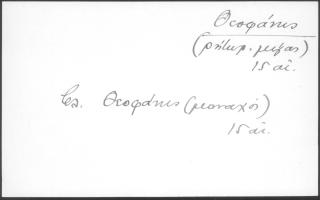 Θεοφάνης
(ρήτωρ. μέγας)
15 αἰ.
βλ. Θεοφάνης (μοναχός)
15 αἰ.